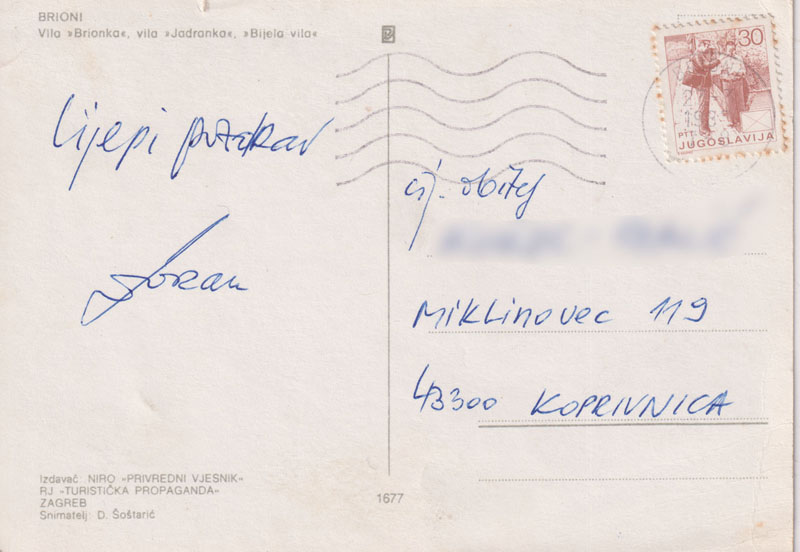 BRIONI
Vila »Brionka«, vila »Jadranka«, »Bijela vila«
Lijepi pozdrav
Zoran
30
PTT
JUGOSLAVIJA
cij. obitelj
MIKLINOVEC 119
43300 KOPRIVNICA
Izdavač: NIRO »PRIVREDNI VJESNIK«
RJ »TURISTIČKA PROPAGANDA«
ZAGREB
Snimatelj: D. Šoštarić
1677